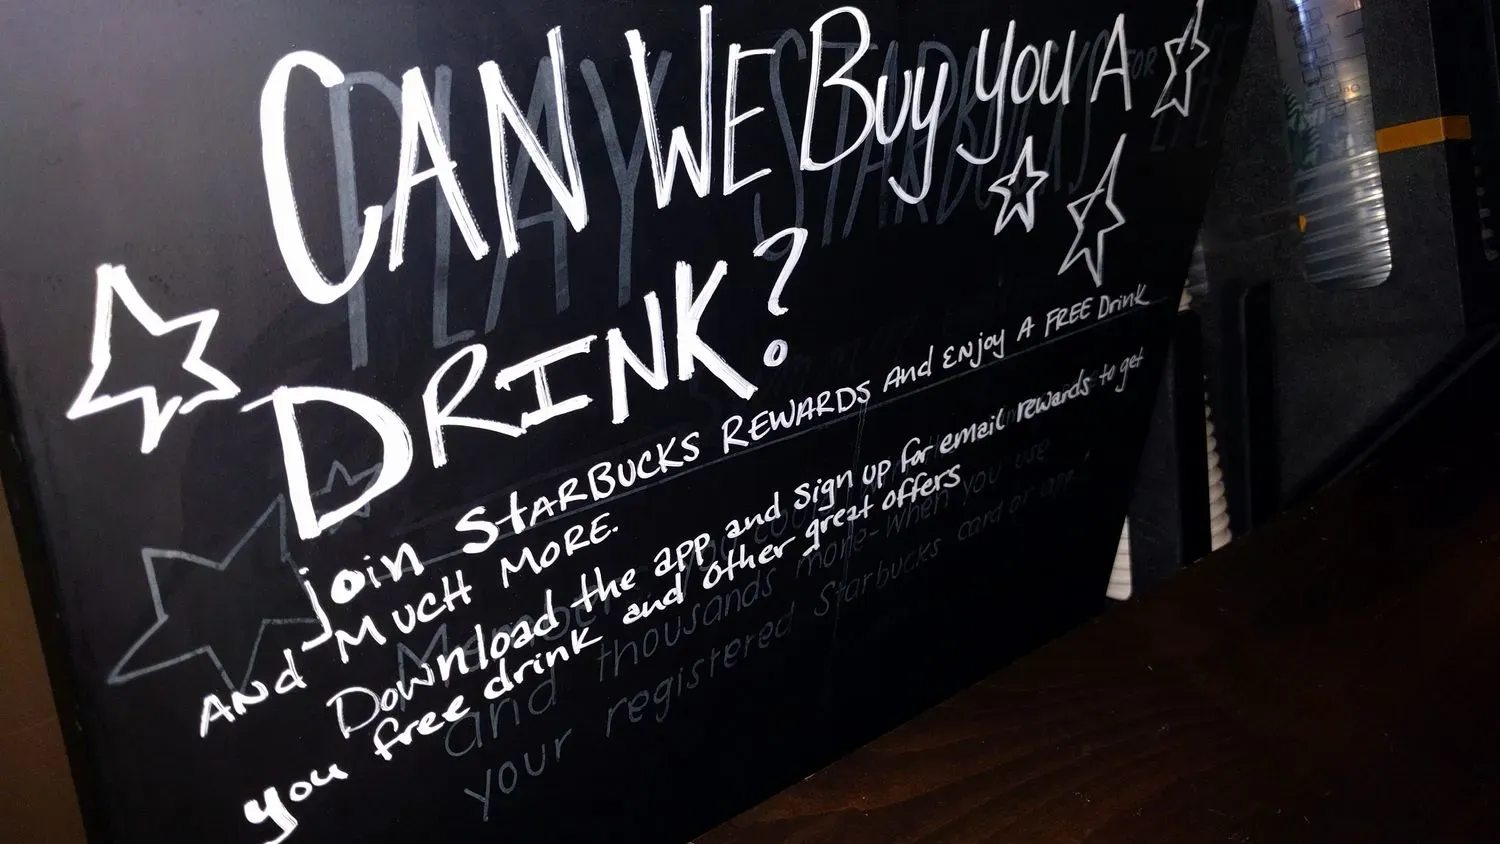 CAN WE Buy you A
DRINK?
join STARBUCKS REWARDS And ENjoy A FREE Drink
AND MUCH MORE.
Download the app and sign up for email rewards to get
you free drink and other great offers
PLAY STARBUCKS FOR LIFE
and thousands more - when you use
your registered Starbucks card or app.